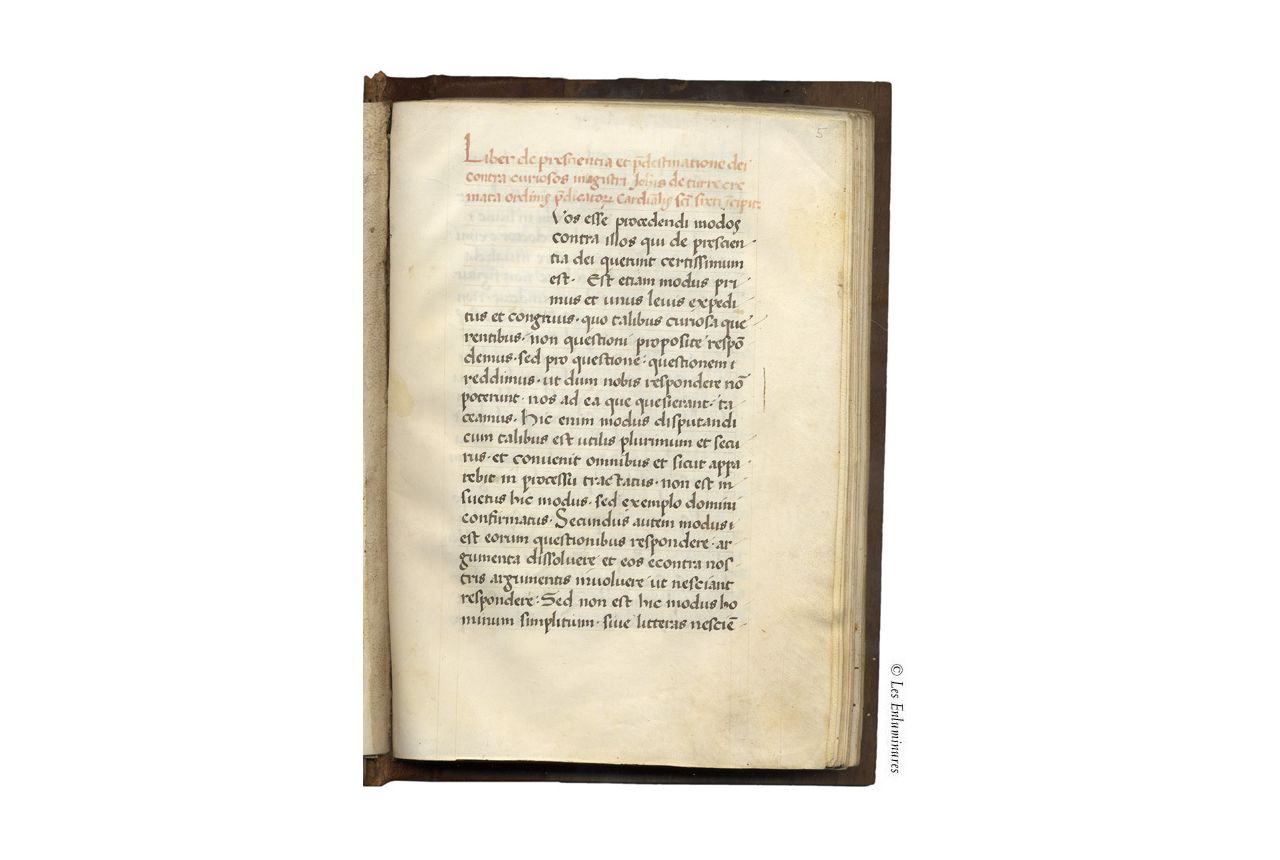 5
Liber de prescientia et p̄destinatione dei
contra curiosos magistri Joh̄is de turre cre
mata ordinis p̄dicatoꝝ Cardinalis sc̄i sixti īcipit
Vos esse procedendi modos
contra illos qui de prescien
tia dei querunt certissimum
est. Est etiam modus pri
mus et unus levis expedi
tus et congruus. quo talibus curiosa que
rentibus. non questioni proposite respō
demus. sed pro questione. questionem
reddimus. ut dum nobis respondere nō
poterunt. nos ad ea que quesierant. ta
ceamus. Hic enim modus disputandi
cum talibus est utilis plurimum et secu
rus. et convenit omnibus et sicut appa
rebit in processu tractatus. non est in
suetus hic modus. sed exemplo domini
confirmatus. Secundus autem modus
est eorum questionibus respondere. ar
gumenta dissolvere et eos econtra nos
tris argumentis involvere ut nesciant
respondere. Sed non est hic modus ho
minum simplitium. sive litteras nesciē
© Les Enluminures